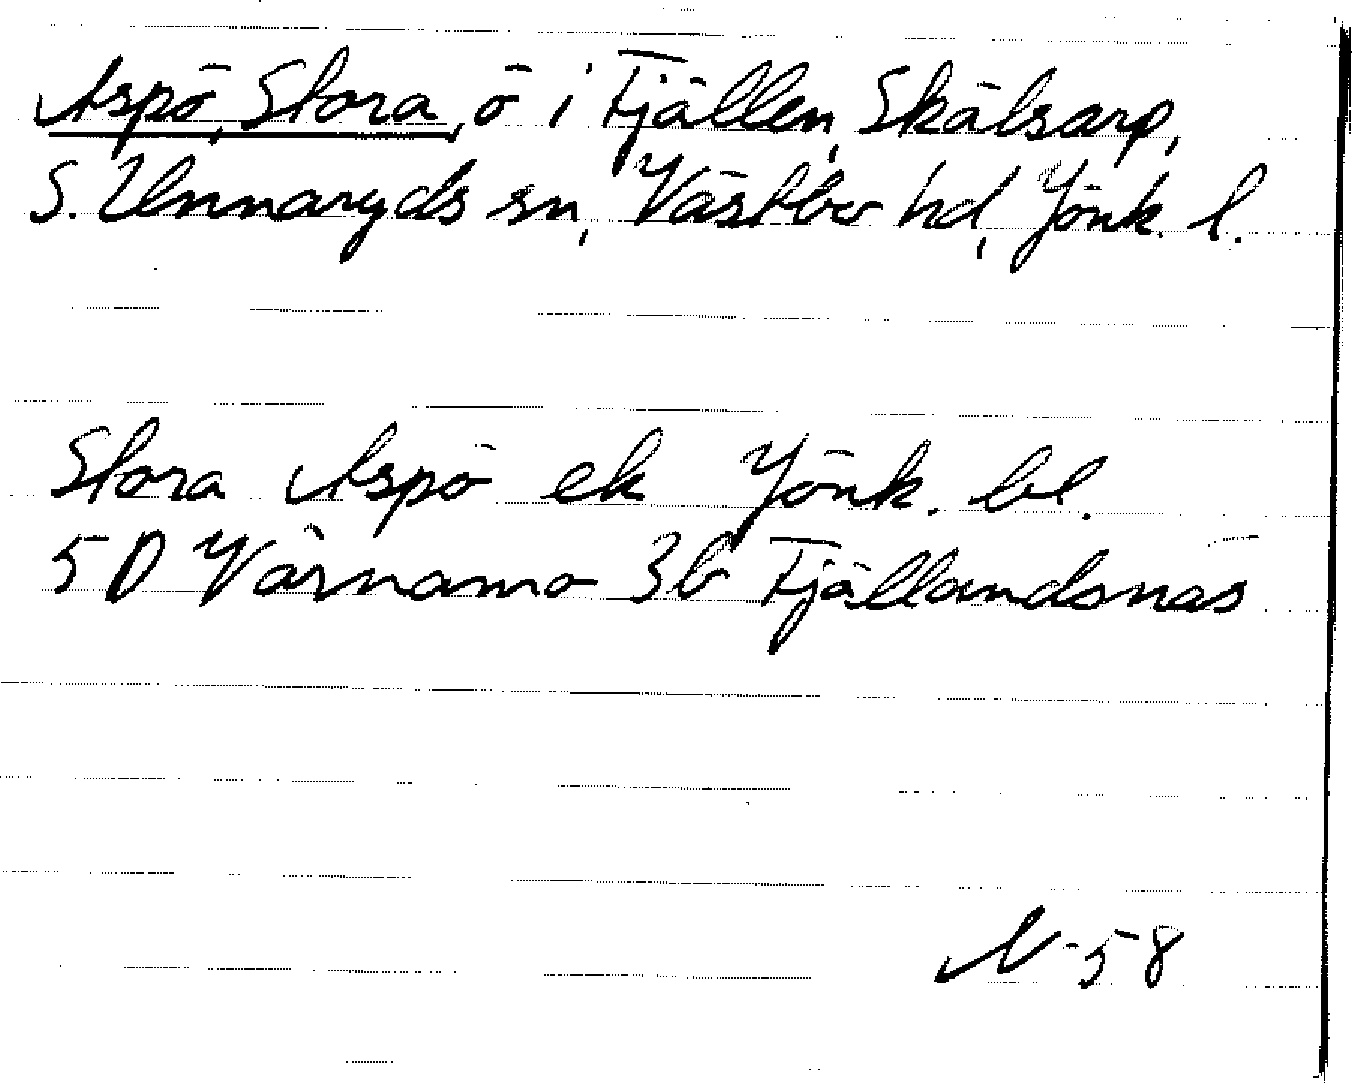 Aspö, Stora, ö i Fjällen, Skälsarp,
S. Unnaryds sn, Västbo hd, Jönk. l.
Stora Aspö ek Jönk. bl.
5D Värnamo 3b Fjällandsnäs
N-58